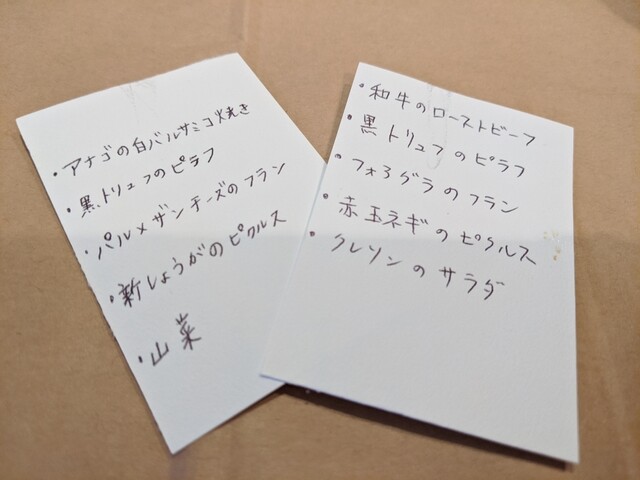 ・アナゴの白バルサミコ焼き
・黒トリュフのピラフ
・パルメザンチーズのフラン
・新しょうがのピクルス
・山菜
・和牛のローストビーフ
・黒トリュフのピラフ
・フォアグラのフラン
・赤玉ネギのピクルス
・クレソンのサラダ